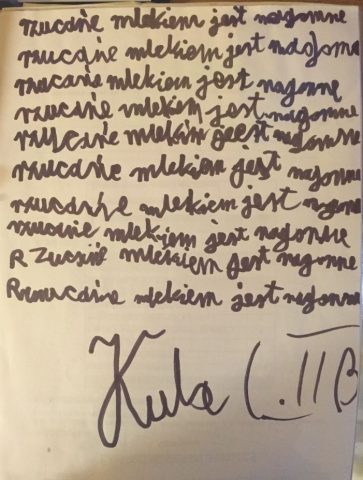 rzucanie mlekiem jest nagonne
rzucanie mlekiem jest nagonne
rzucanie mlekiem jest nagonne
rzucanie mlekiem jest nagonne
rzucanie mlekim jest nagonne
rzucanie mlekiem jest nagonne
rzucanie mlekiem jest nagonne
rzucanie mlekiem jest nagonne
Rzucanie mlekiem jest nagonne
mlekiem jest nagonne
Kuba C. II B